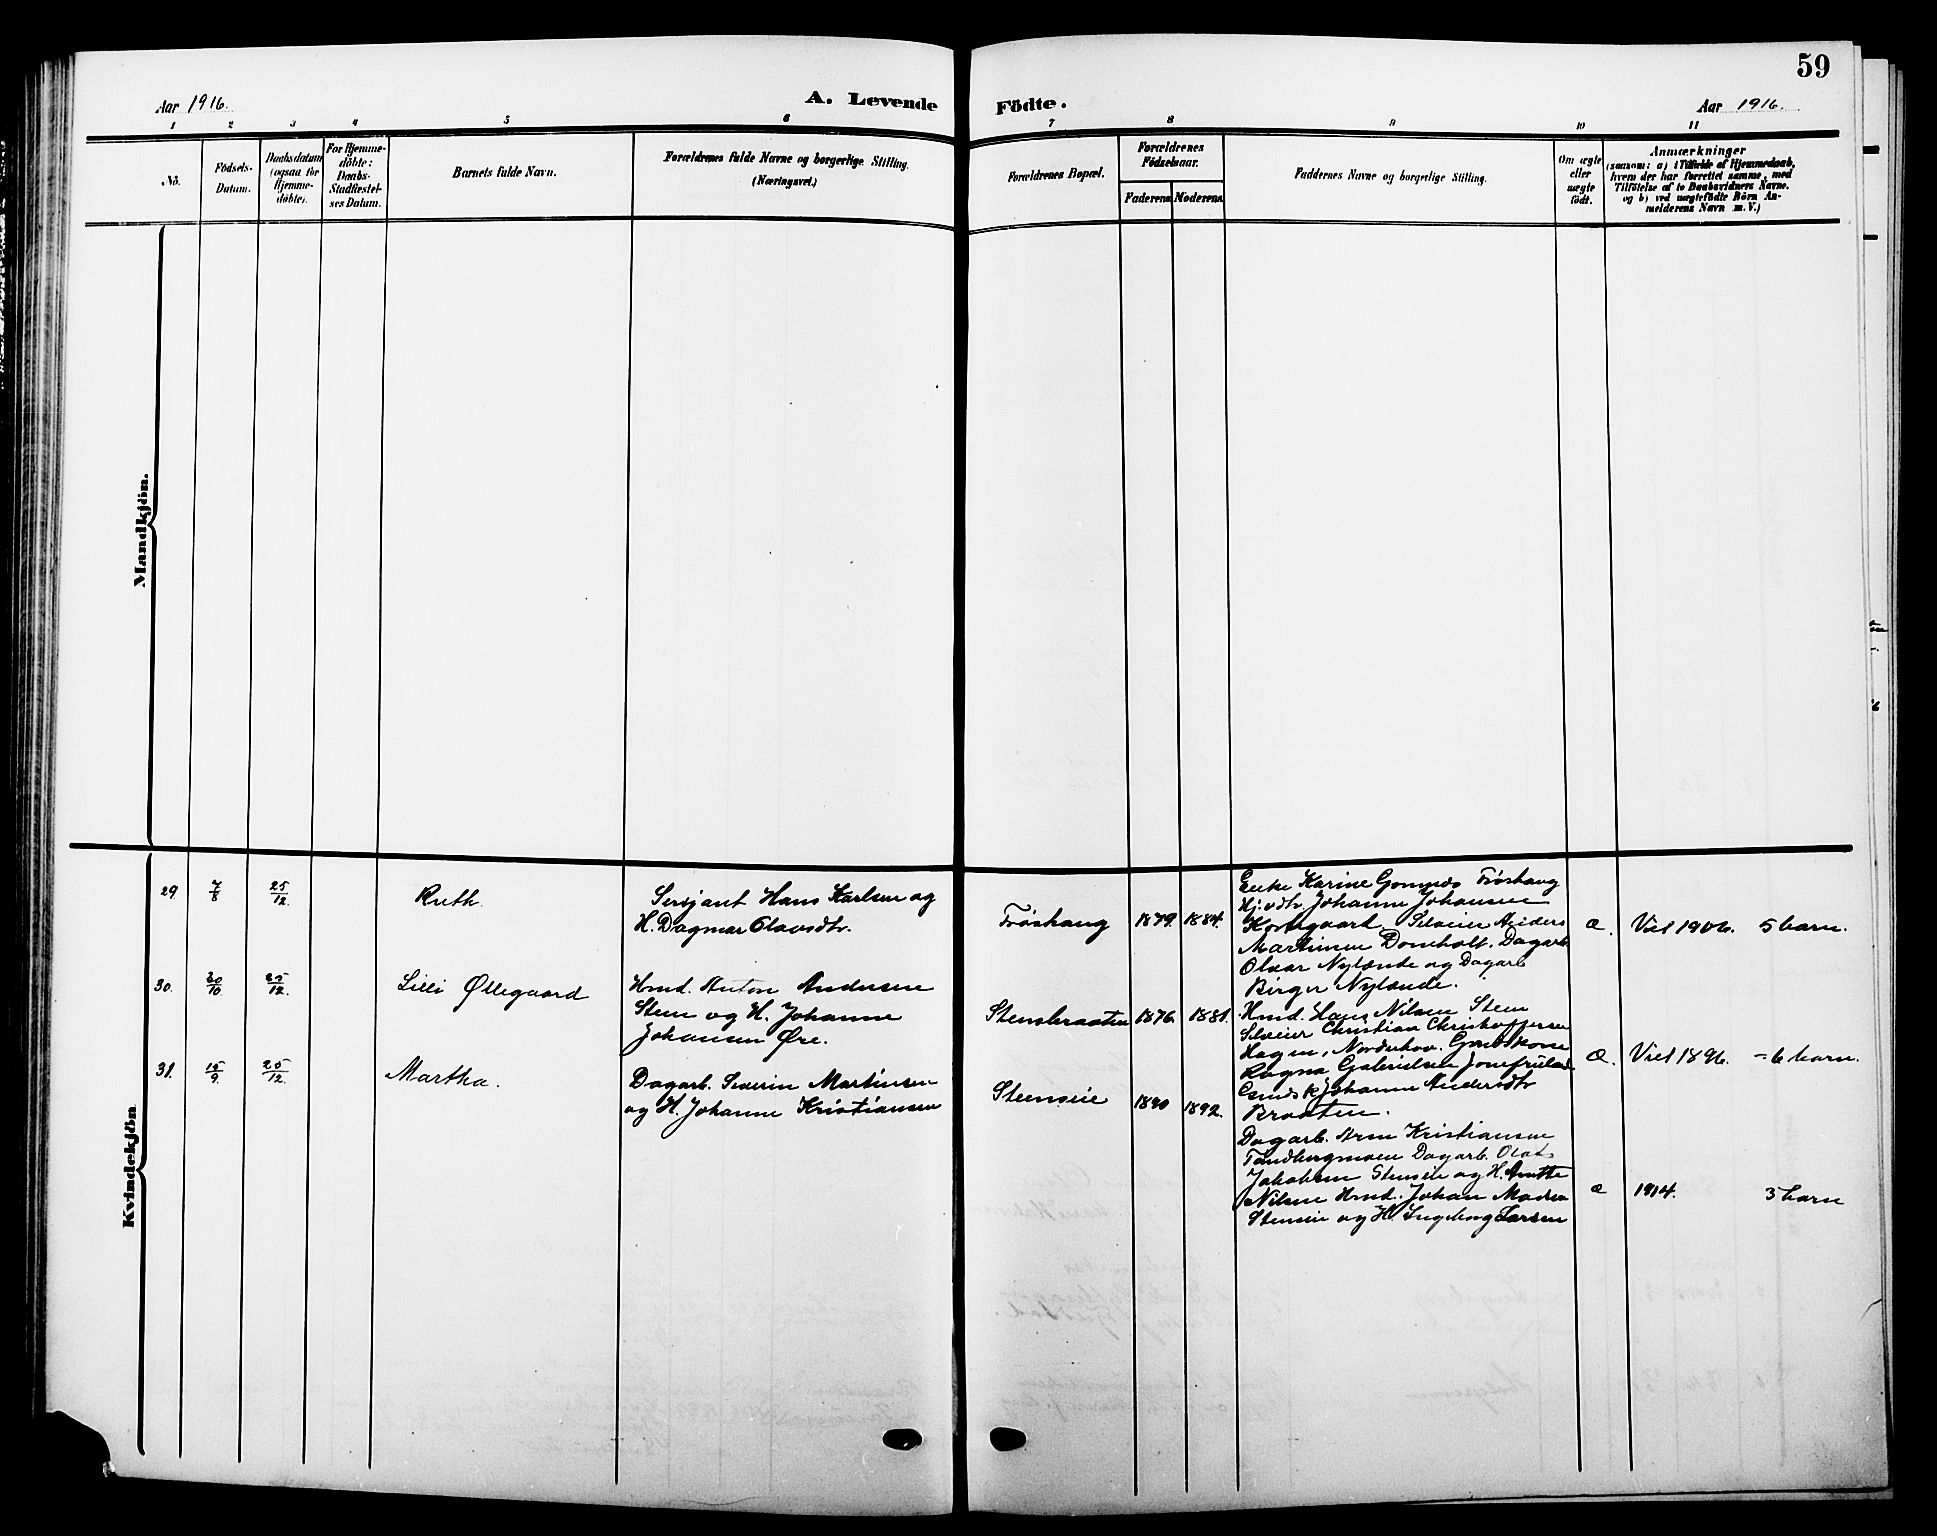 59
Aar 1916.
A. Levende
Födte.
Aar 1916.
1 2 3 4 5 6 7 8 9 10 11
No.
Födsels-
Datum.
Daabsdatum
(ogsaa for
Hjemme-
döbte).
For Hjemme-
döbte:
Daabs-
Stadfæstel-
ses Datum.
Barnets fulde Navn.
Forældrenes fulde Navne og borgerlige Stilling.
(Næringsvei.)
Forældrenes Bopæl.
Forældrenes
Födselsaar.
Faderens
Moderens
Faddernes Navne og borgerlige Stilling.
Om ægte
eller
uægte
födt.
Anmærkninger
(saasom: a) i Tilfælde af Hjemmedaab,
hvem der har forrettet samme, med
Tilföielse af to Daabsvidners Navne.
og b) ved uægtefödte Börn An-
melderens Navn m. V.)
Mandkjön.
Kvindekjön
29 7/8 25/12.
Ruth.
Sersjant Hans Karlsen og
H. Dagmar Olavsdtr.
Frøshaug
1879. 1884.
Enke Karine Frøshaug
Hj.v.dtr. Johanne Johansen
Korsgaard. Selveier Anders
Martinsen Domholt. Dagarb
Olvar Nylænde og Dagarb
Birger Nylænde.
Æ.
Viet 1906. 5 barn.
30. 20/10 25/12.
Lilli Øllegaard
Hmd. Anton Andersen
Steen og H. Johanne
Johansen Øre.
Stensbraaten
1876 1881.
Hmd. Hans Nilsen Steen
Selveier Christian Christoffersen
Hagen, Norderhov. Gmdskone
Ragna Gabrielsen
Johanne Andersdtr
Braaten.
Æ.
Viet 1896. - 6 barn.
31. 15/9. 25/12.
Martha.
Dagarb. Severin Martinsen
og H. Johanne Kristiansen
Steenseie
1890 1892.
Dagarb. Arne Kristiansen
Tandbergmoen Dagarb. Olaf
Jakobsen Stenseie og H. Anette
Nilsen Hmd. Johan Madsen
Stenseie og H. Ingeborg Larsen
Æ
1914. 3 barn